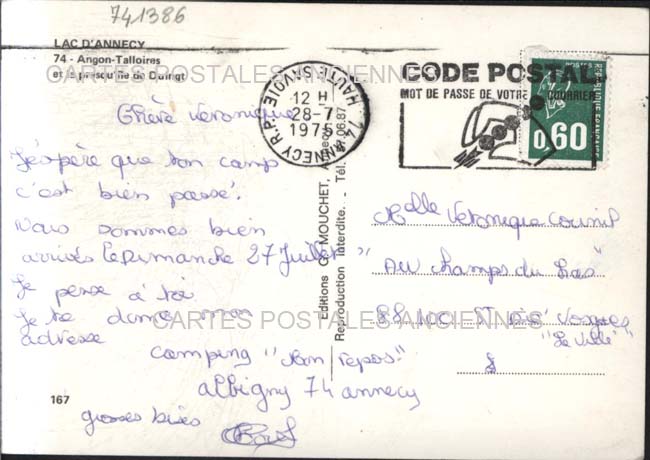 741386
LAC D'ANNECY
74 - Angon-Talloires
et la presqu'île de Duingt
CARTES POSTALES ANCIENNES
74 ANNECY R.P.
HAUTE SAVOIE
12 H
28-7
1975
CODE POSTAL
MOT DE PASSE DE VOTRE COURRIER
0,60
REPUBLIQUE FRANÇAISE
Chère Véronique
J'éspère que ton camp
c'est bien passé.
Nous sommes bien
arrivés le Dimanche 27 Juillet
Je pense à toi
Je te donne mon
adresse
camping "Mon repos"
albigny 74 annecy
grosses bises
167
Editions G. MOUCHET,
Reproduction interdite. - Tél.
06.87
Melle Véronique
"Au champs du
88 St Dié Vosges
CARTES POSTALES ANCIENNES